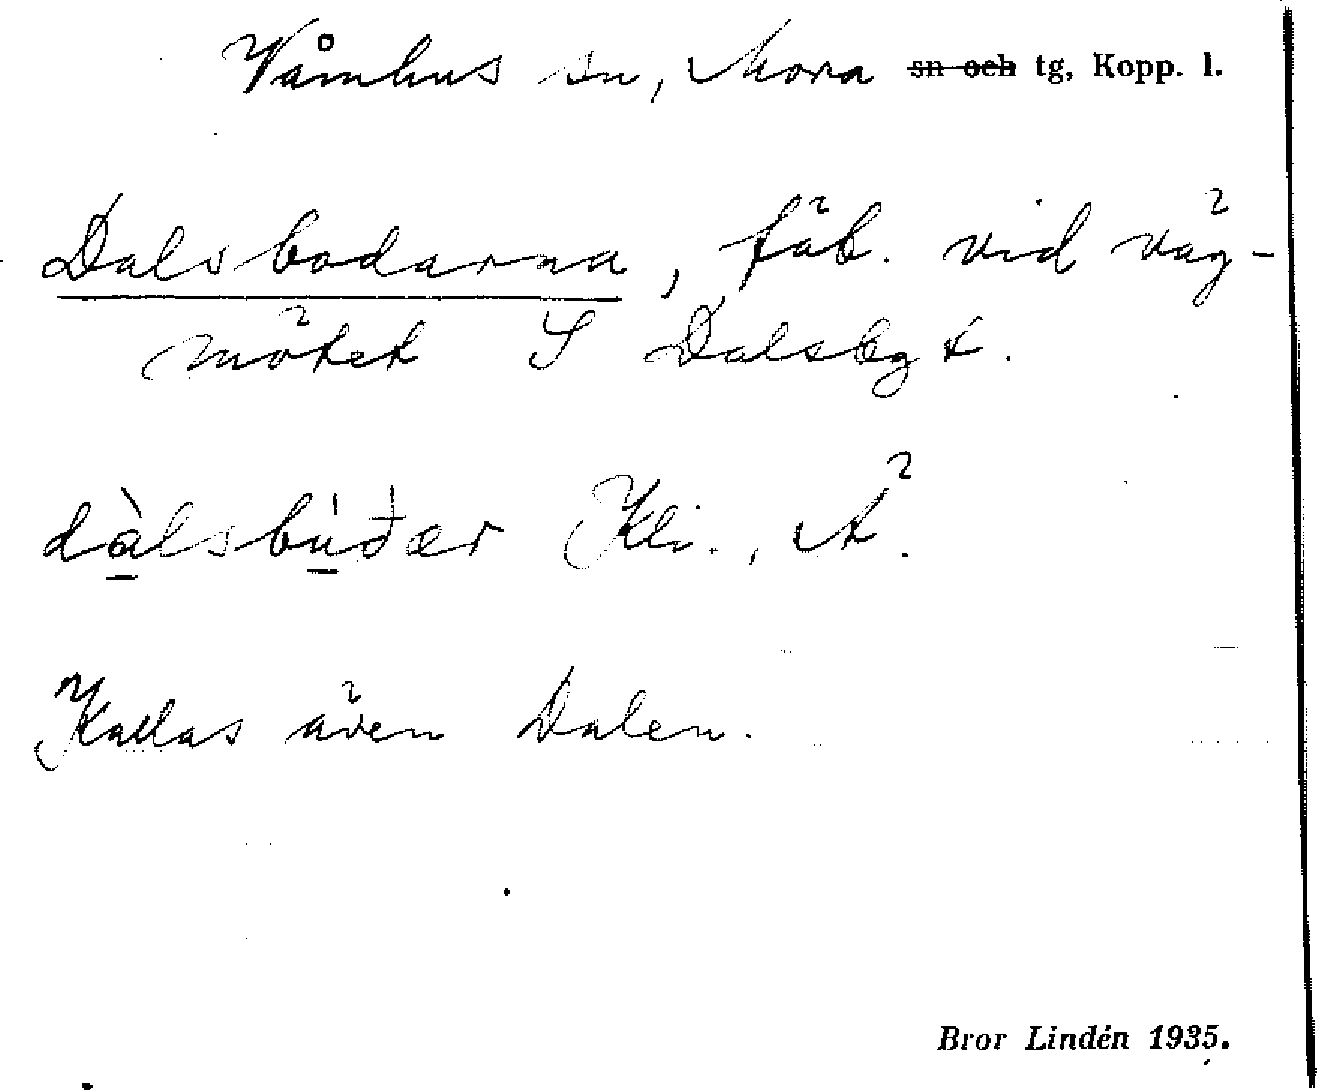 Våmhus sn, Mora ~~sn och~~ tg, Kopp. l.
Dalsbodarna, fäb. vid väg-
mötet S Dalsbyt.
dà̱lsbù̱đær Kli., Ä.
Kallas även Dalen.
Bror Lindén 1935.